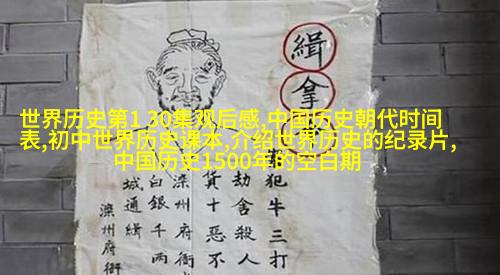 世界历史第1 30集观后感,中国历史朝代时间
表,初中世界历史课本,介绍世界历史的纪录片,
中国历史1500年的空白期
緝拿
犯牛三打
劫舍殺人
貨十惡不
滦州府衙
白銀千两
城通緝
滦州府衙